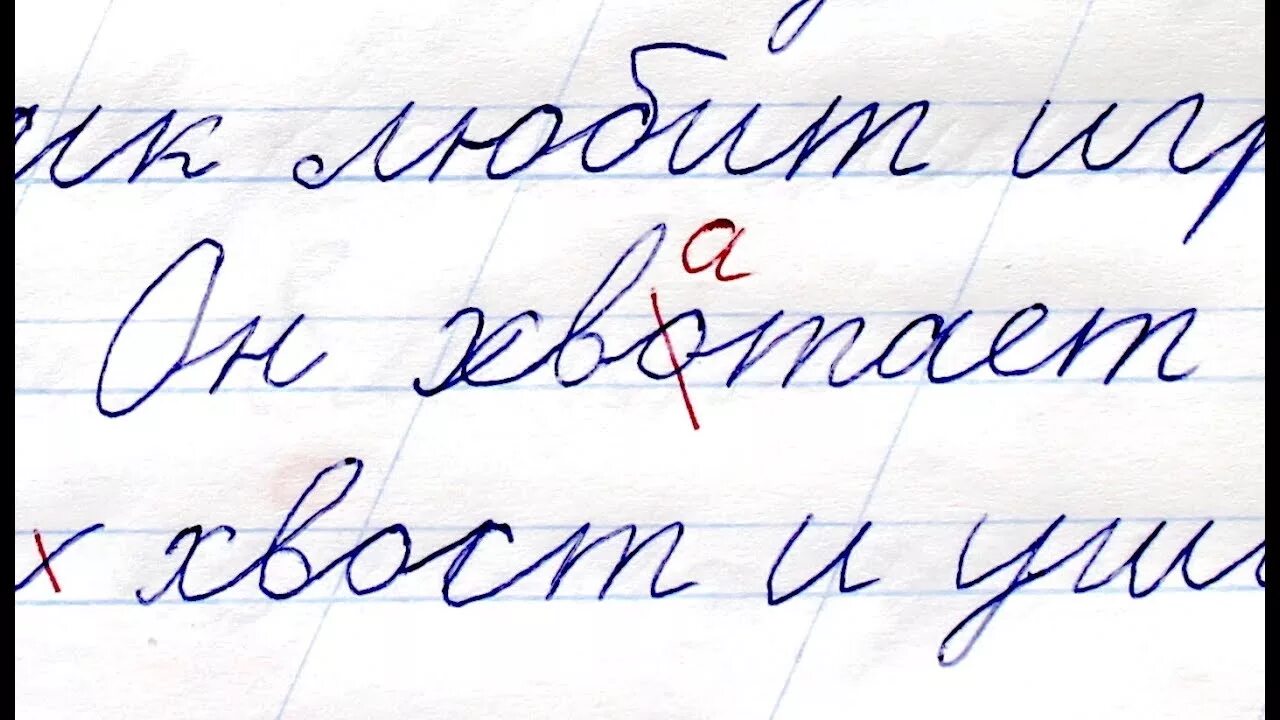 ик любит игр
а
Он хвотает
х хвост и уши